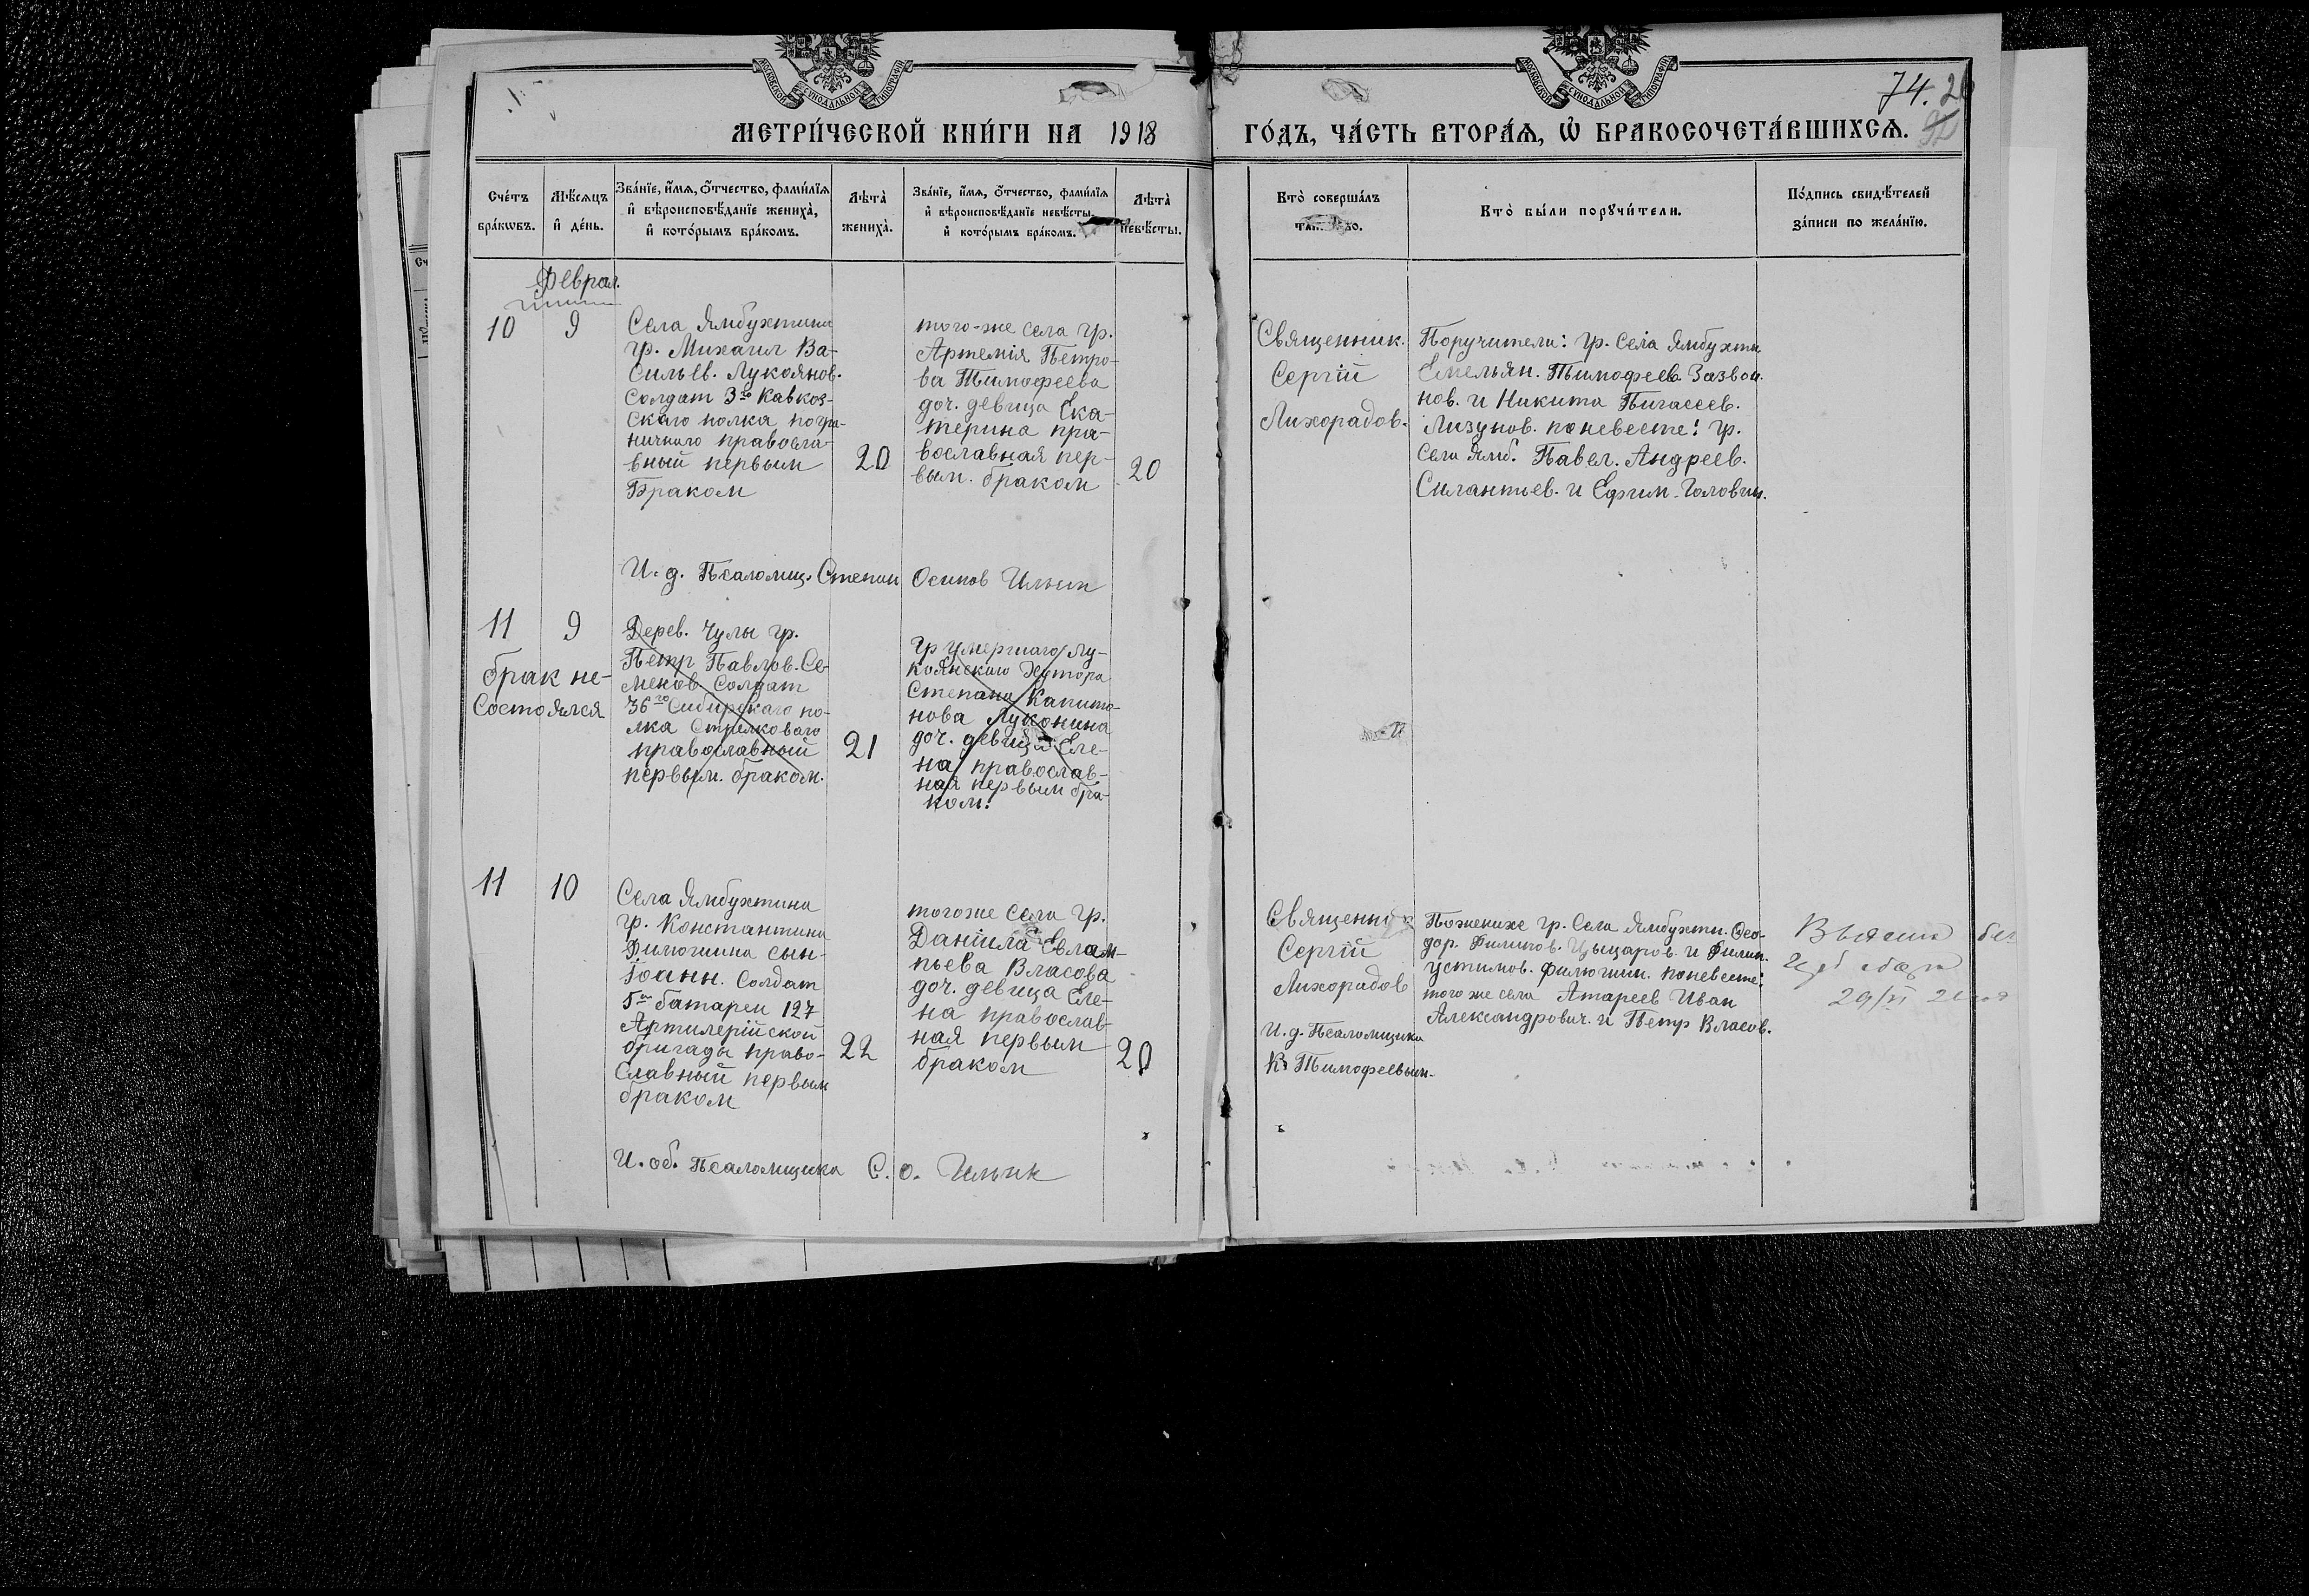 МОСКОВСКОЙ СѴНОДАЛЬНОЙ ТИПОГРАФІИ
МОСКОВСКОЙ СѴНОДАЛЬНОЙ ТИПОГРАФІИ
74.
МЕТРИ́ЧЕСКОЙ КНИ́ГИ НА 1918 ГО́ДЪ, ЧА́СТЬ ВТОРА́Ѧ, Ѡ҆ БРАКОСОЧЕТА́ВШИХСѦ.
Сче́тъ бра́кѡвъ.
Мѣ́сѧцъ и҆ де́нь.
Зва́нїе, и҆́мѧ, ѻ҆́тчество, фами́лїѧ и҆ вѣроисповѣ́данїе жениха̀, и҆ кото́рымъ бра́комъ.
Лѣ́та̀ жениха̀.
Зва́нїе, и҆́мѧ, ѻ҆́тчество, фами́лїѧ и҆ вѣроисповѣ́данїе невѣ́сты, и҆ кото́рымъ бра́комъ.
Лѣ́та̀ невѣ́сты.
Кто̀ соверша́лъ
Кто̀ бы́ли порꙋчи́тели.
По́дпись свидѣ́телей за́писи по жела́нїю.
Феврал.
10
9
Села Ямбухтина
гр. Михаил Ва-
сильев. Лукоянов.
Солдат 3го Кавказ-
скаго полка погра-
ничнаго правосла-
вный первым
Браком
20
того-же села гр.
Артемія Петро-
ва Тимофеева
доч. девица Ека-
терина пра-
вославная пер-
вым. браком
20
Священник.
Сергій
Лихорадов.
Поручители: гр. Села Ямбухти
Емельян. Тимофеев Зазвон.
нов. и Никита Пигасеев.
Лизунов. поневесте: гр.
Села Ямб. Павел. Андреев.
Силантьев. и Ефим. Головин.
И. д. Псаломщ. Степан Осипов Ильин
11
9
брак не-
состоялся
Дерев. Чулы гр.
Петр Павлов. Се-
менов Солдат
36го Сибирскаго по-
лка Стрелковаго
православный
первым. браком.
21
гр умершаго Лу-
коянскаго Хутора
Степана Капито-
нова Луконина
доч. девица Еле-
на православ-
ная первым бра-
ком.
11
10
Села Ямбухтина
гр. Константина
Филюшина сын-
Іоанн. Солдат
5й батареи 127
Артилерійской
бригады право-
славный первым
браком
22
тогоже Села гр.
Даніила Евлам-
пьева Власова
доч. девица Еле-
на православ-
ная первым
браком
20
Священник
Сергій
Лихорадов
И. д. Псаломщика
К Тимофеевым.
Поженихе гр. Села Ямбухти. Фео-
дор. Филипов. Цыцаров. и Филип.
Устимов. Филюшин. поневесте:
того же села Атареев Иван
Александрович. и Петр Власов.
И. об. Псаломщика С. О. Ильин